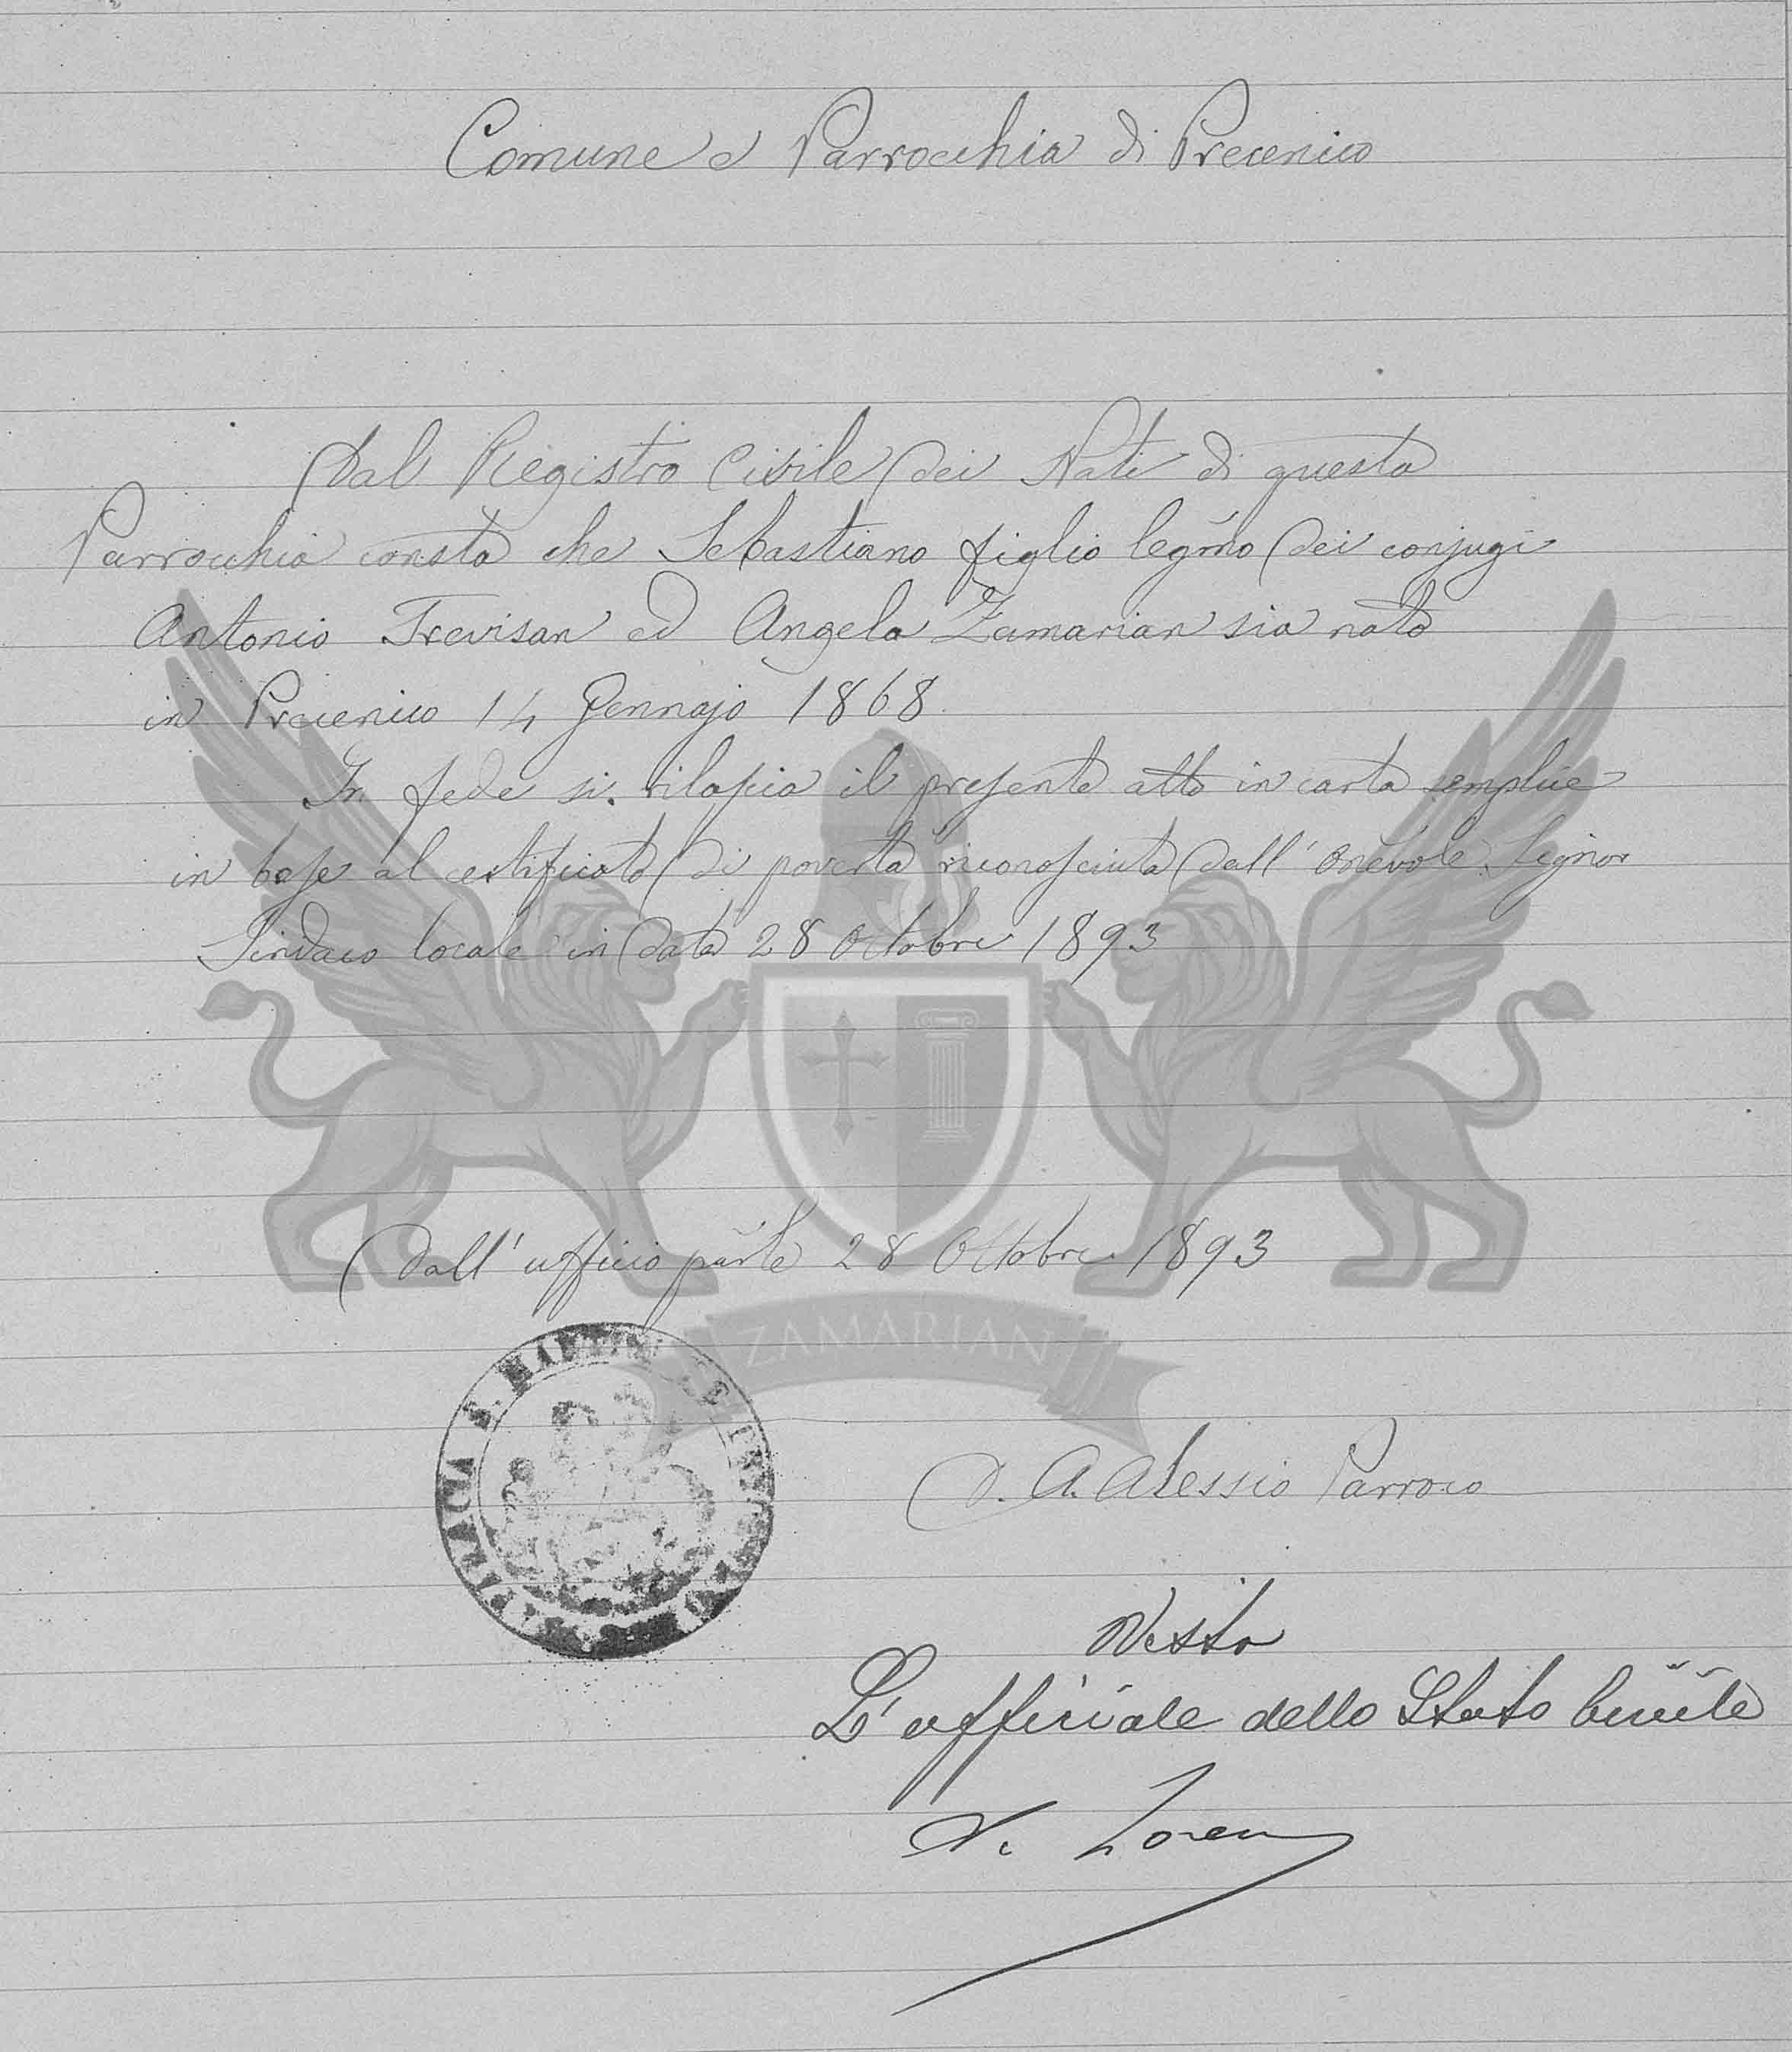 Comune e Parrocchia di Precenico
Dal Registro Civile dei Nati di questa
Parrocchia consta che Sebastiano figlio legmo dei conjugi
Antonio Trevisan ed Angela Zamarian sia nato
in Precenico 14 Gennajo 1868.
In fede si rilascia il presente atto in carta semplice
in base al certificato di povertà riconosciuta dall' Onevole Signor
Sindaco locale in data 28 Ottobre 1893
Dall' ufficio parle 28 Ottobre 1893
ZAMARIAN
D. A. Alessio Parroco
Visto
L' officiale dello Stato Civile